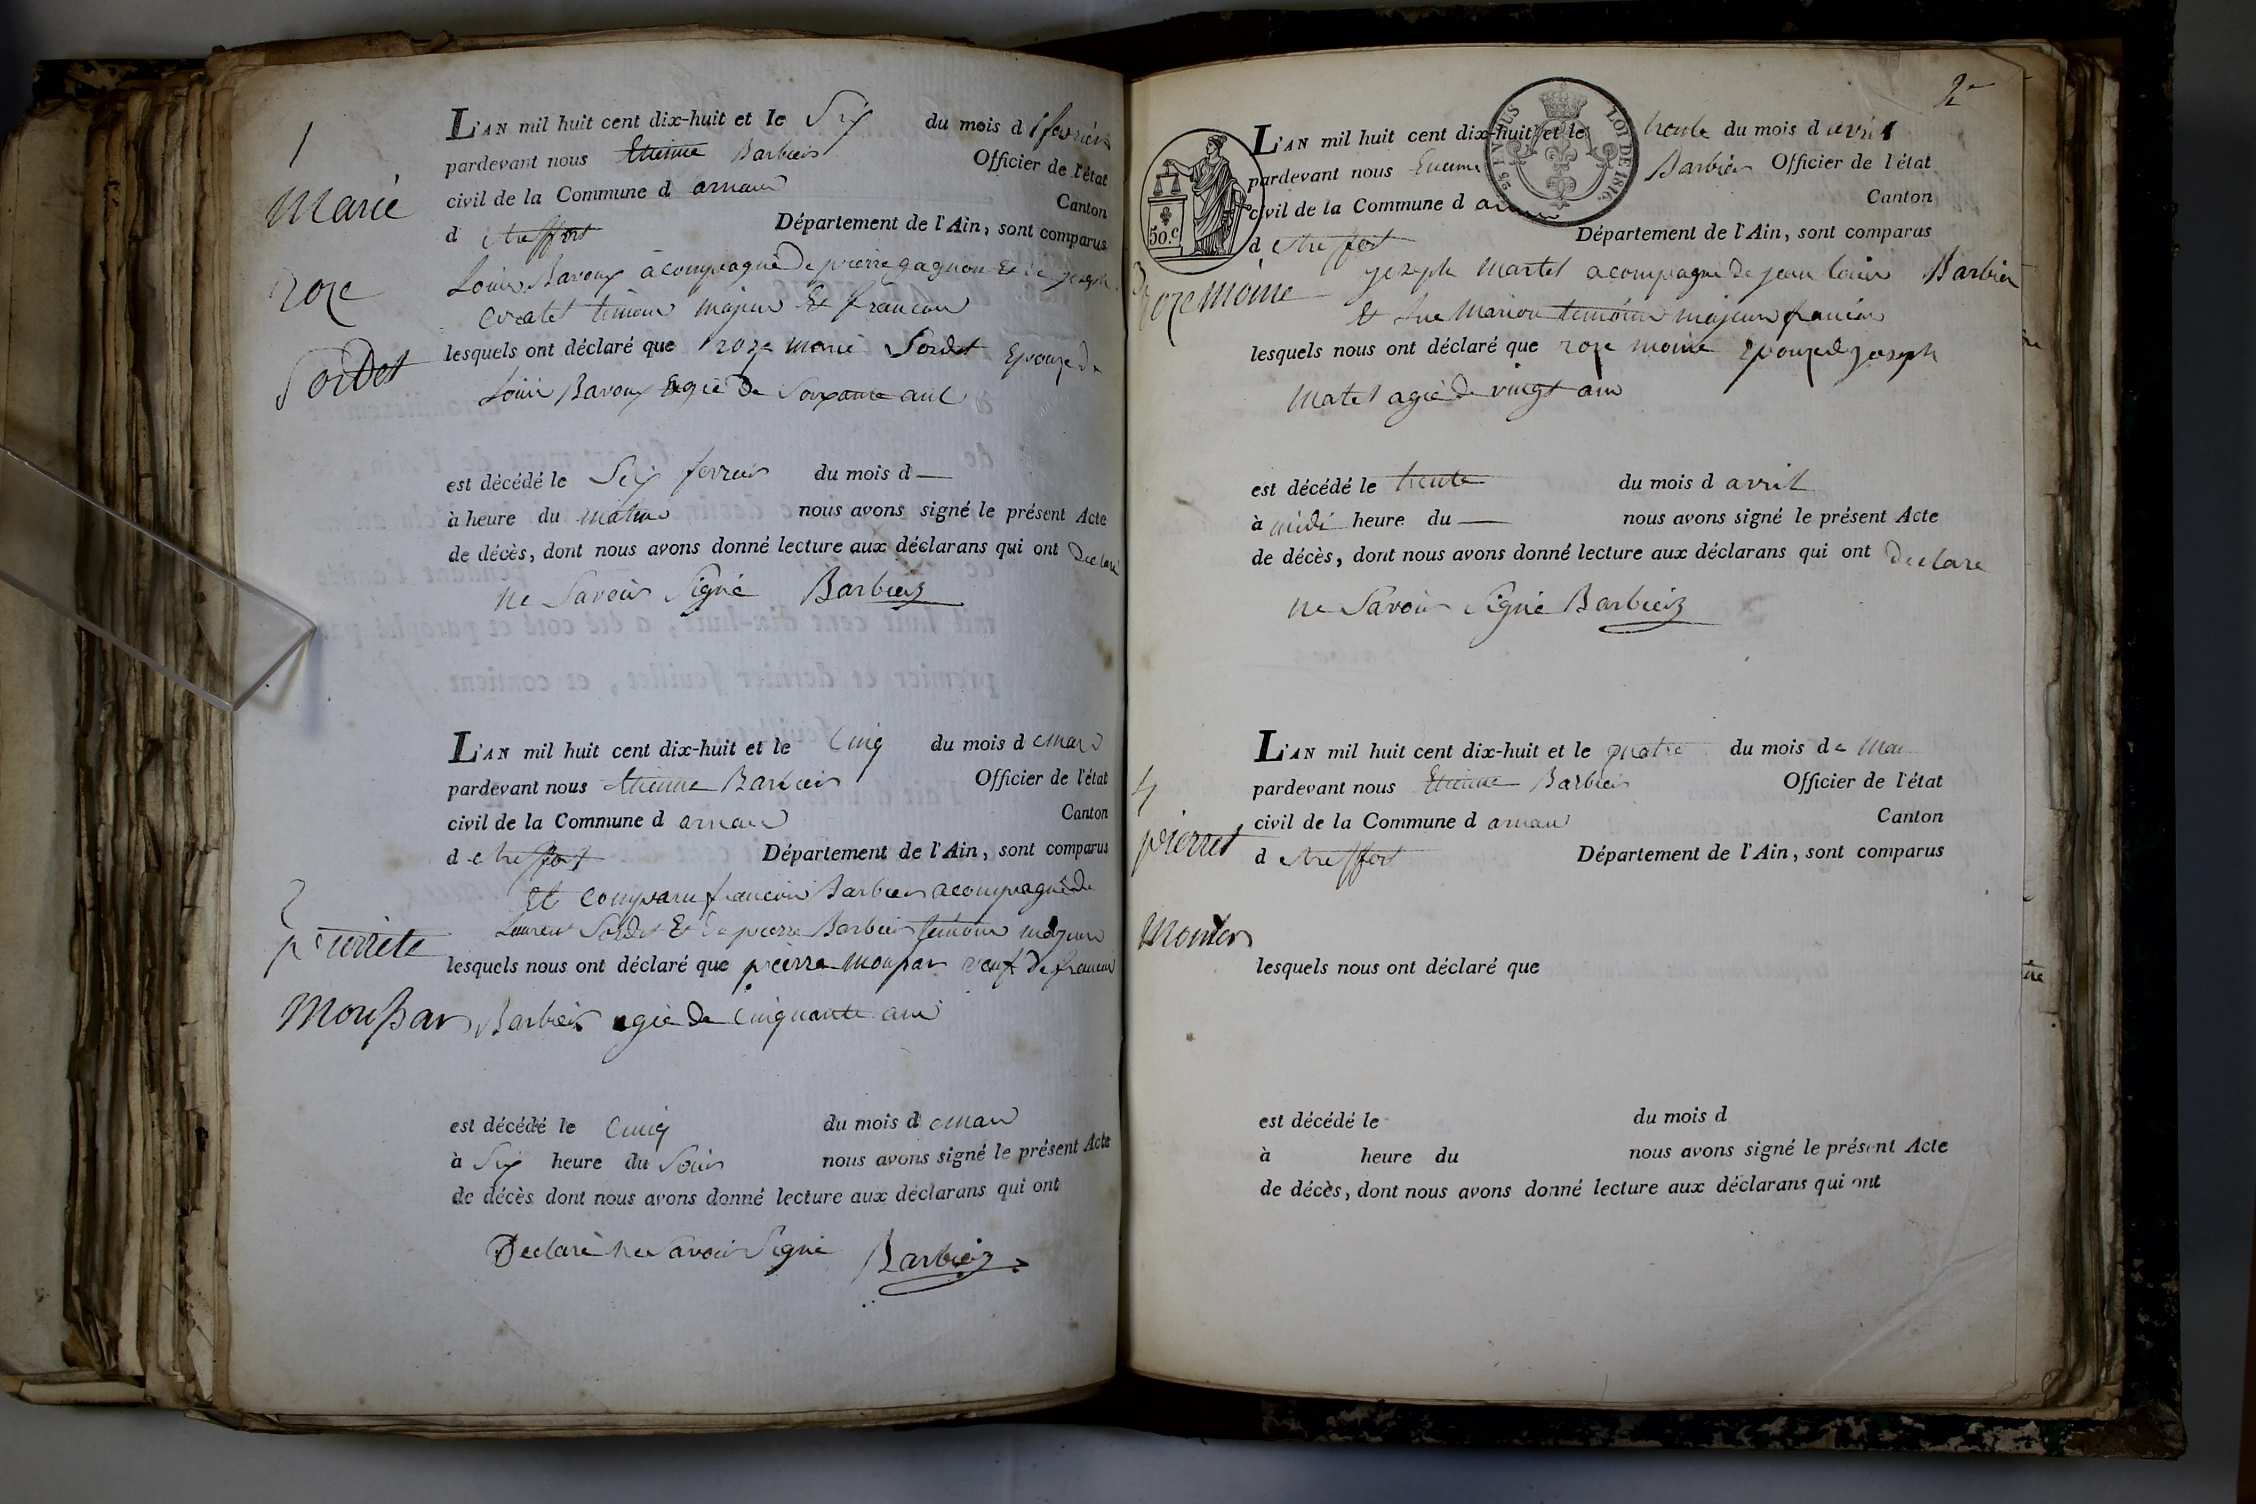 1
Marie
roze
Sordet
L'AN mil huit cent dix-huit et le Six du mois d fevrier
pardevant nous Etienne Barbier Officier de l'état
civil de la Commune d arnan Canton
d etreffort Département de l'Ain, sont comparus
Louis Bavoux acompagné De pierre gagnon Et De joseph
temoin majeur Et francoi
lesquels ont déclaré que roze marie Sordet Epouze de
Louis Bavoux agié De Soixante ant
est décédé le Six fevrier du mois d —
à heure du matin nous avons signé le présent Acte
de décès, dont nous avons donné lecture aux déclarans qui ont Declaré
ne Savoir Signé Barbier
2
pierrete
Moussar
L'AN mil huit cent dix-huit et le Cinq du mois d emars
pardevant nous Etienne Barbier Officier de l'état
civil de la Commune d arnan Canton
d etreffort Département de l'Ain, sont comparus
Et comparu francoi Barbier acompagné de
Laurent Sordet Et De pierre Barbier temoin majeur
lesquels nous ont déclaré que pierre moussar veuf De francoi
Barbier agié De Cinquante ans
est décédé le Cinq du mois d emars
à Six heure du Soir nous avons signé le présent Acte
de décès dont nous avons donné lecture aux déclarans qui ont
Declaré ne Savoir Signé Barbier
2
25 EN SUS
LOI DE 1816.
50.c
3
roze moine
L'AN mil huit cent dix-huit et le trente du mois d avril
pardevant nous Etienne Barbier Officier de l'état
civil de la Commune d arnan Canton
d etreffort Département de l'Ain, sont comparus
joseph martel acompagné De jean louis Barbier
Et marion temoin majeur francoi
lesquels nous ont déclaré que roze moine Epouze de joseph
matel agié De vingt ans
est décédé le trente du mois d avril
à midi heure du — nous avons signé le présent Acte
de décès, dont nous avons donné lecture aux déclarans qui ont Declaré
ne Savoir Signé Barbier
4
pierret
Monter
L'AN mil huit cent dix-huit et le quatre du mois d e mai
pardevant nous Etienne Barbier Officier de l'état
civil de la Commune d arnan Canton
d etreffort Département de l'Ain, sont comparus
lesquels nous ont déclaré que
est décédé le du mois d
à heure du nous avons signé le présent Acte
de décès, dont nous avons donné lecture aux déclarans qui ont